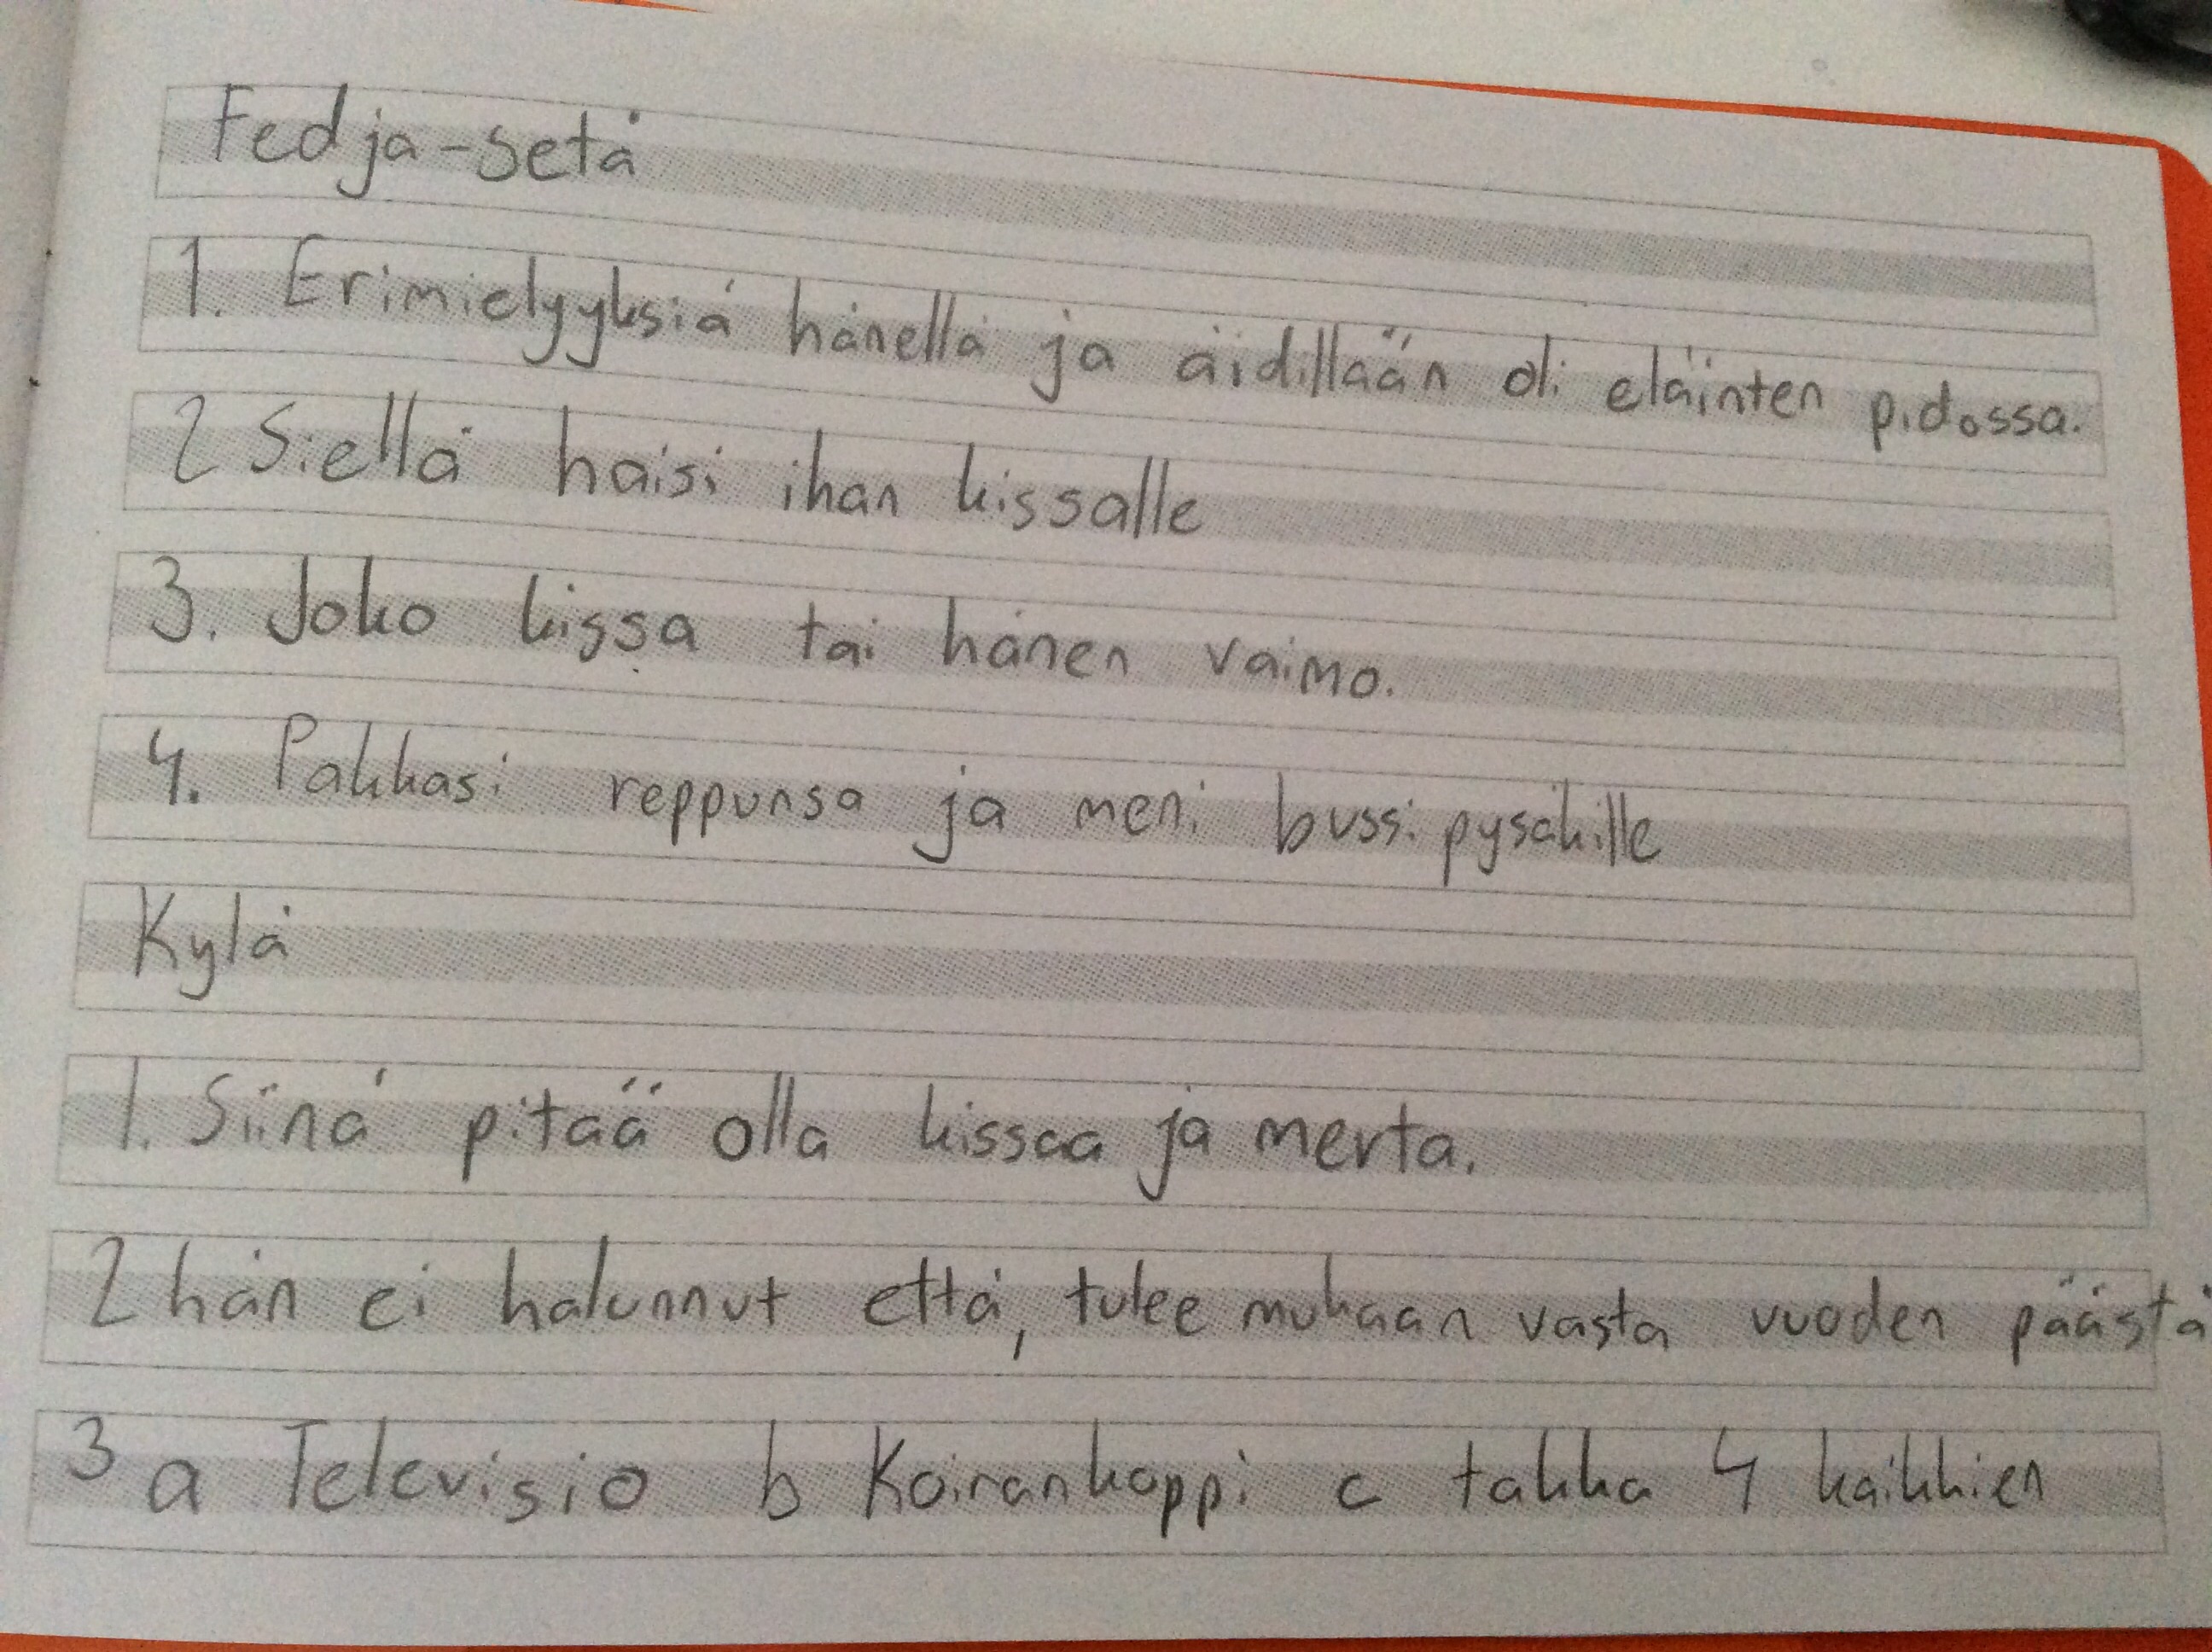 Fedja-setä
1. Erimielyyksiä hänellä ja äidillään oli eläinten pidossa.
2 Siellä haisi ihan kissalle
3. Joko kissa tai hänen vaimo.
4. Pakkasi reppunsa ja meni bussi pysäkille
Kylä
1. Siinä pitää olla kissaa ja merta.
2 hän ei halunnut että, tulee mukaan vasta vuoden päästä
3 a Televisio b Koirankoppi c takka 4 kaikkien